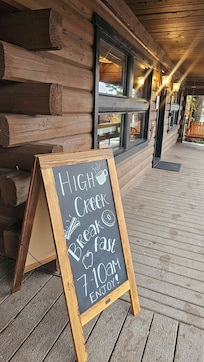 HIGH
CREEK
BREAK
fast
7-10AM
ENJOY!